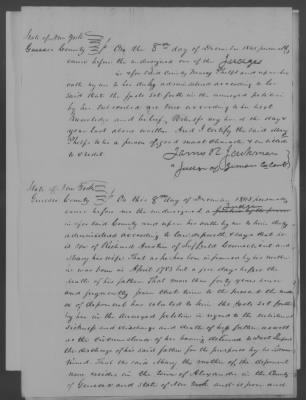 State of New York
Genesee County } On this 8th day of December 1845 personally
came before the undersigned one of the Judges
in & for said County Mercy Phelps and upon her
oath by me to her duly administered according to law
said that the facts set forth in the annexed petition
by her subscribed are true according to her best
knowledge and belief, Witness my hand the day &
year last above written And I certify the said Mercy
Phelps to be a person of good moral character & entitled
to credit
James R Jackman
Judge of Genesee Co Courts
State of New York
Genesee County } On this 8th day of December 1845 personally
came before me the undersigned a Judge
in & for said County and upon his oath by me to him duly
administered according to law deposeth & says that he
is son of Richard Austin of Suffield Connecticut and
Mary his wife That as he has been informed by his mother
he was born in April 1783 but a few days before the
death of his father That more than forty years since
and frequently from that time to the present the mother
of deponent has related to him the facts set forth
by her in the annexed petition in regard to the enlistment
sickness and discharge and death of his father as well
as the circumstances of her having delivered to
the discharge of his said father for the purposes by her
That he said Mary the mother of the deponent
now resides in the town of Alexander in the County
of Genesee and State of New York and upon and